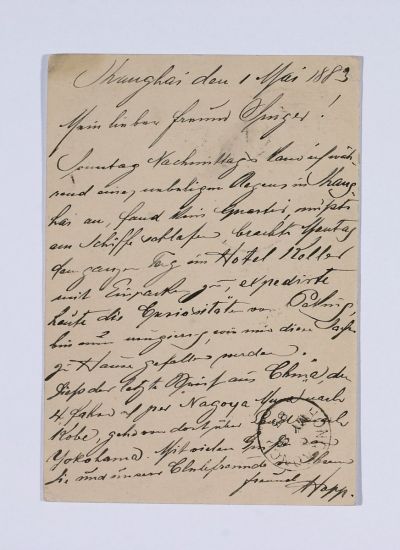 Shanghai den 1 Mai 1883
Mein lieber Freund Singer!
Sonntag Nachmittags kam ich wäh-
rend eines unheligen Regens in Shang-
hai an, fand kein Quartier, mußte
am Schiffe schlafen, brachte Montag
den ganzen Tag im Hotel Koller
mit Einpacken zu, expedirte
heute die Curiositäten von Peking,
bin nun neugierig, wie mir diese
zu Hause gefallen werden.
Dieß der letzte Brief aus China, den
4. fahre ich per Nagoya Maru nach
Kobe, gehe von dort über Land nach
Yokohama. Mit vielen Grüßen an
Sie und unsere Clubfreunde Ihr
Freund Hopp.